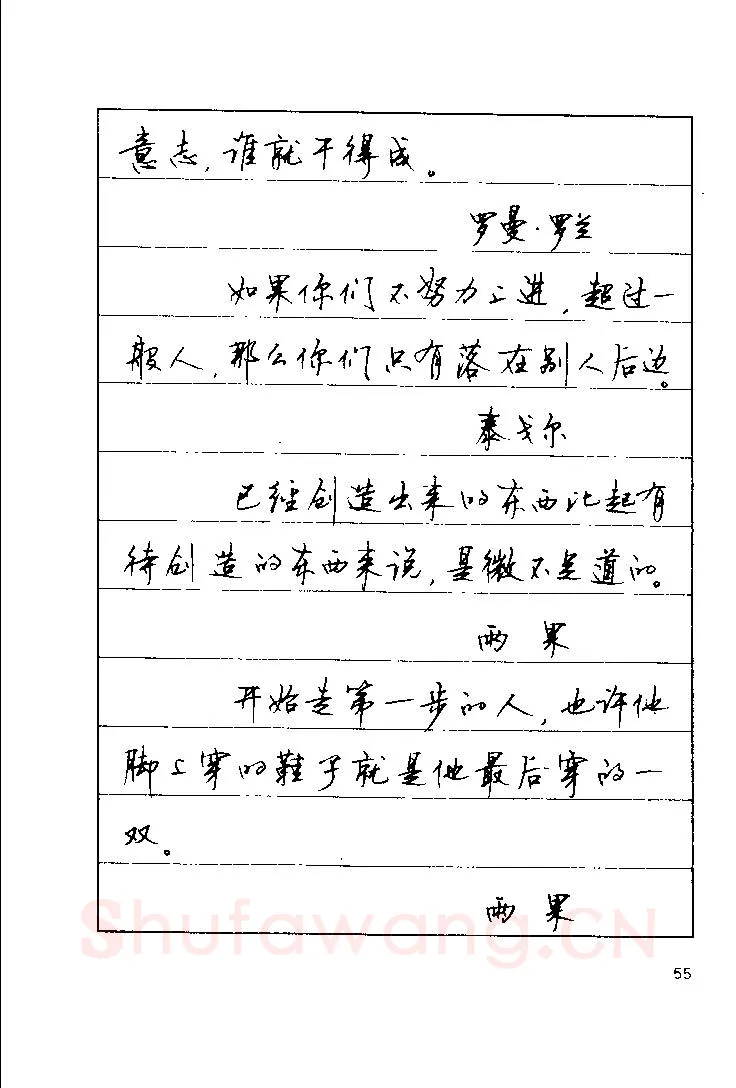 意志,谁就干得成。
罗曼·罗兰
如果你们不努力上进,超过一
般人,那么你们只有落在别人后边。
泰戈尔
已经创造出来的东西比起有
待创造的东西来说,是微不足道的。
雨果
开始走第一步的人,也许他
脚上穿的鞋子就是他最后穿的一
双。
雨果
Shufawang.CN
55